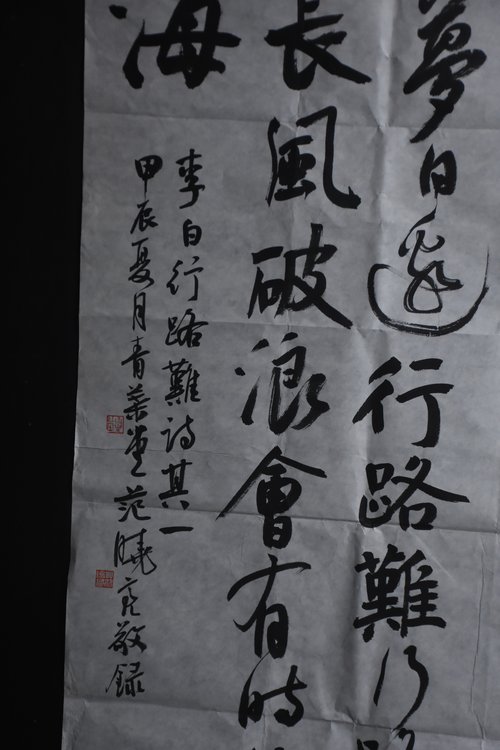 夢日邊行路難行路
長風破浪會有時
海
李白行路難詩其一
甲辰夏月青葉堂范曉亮敬録